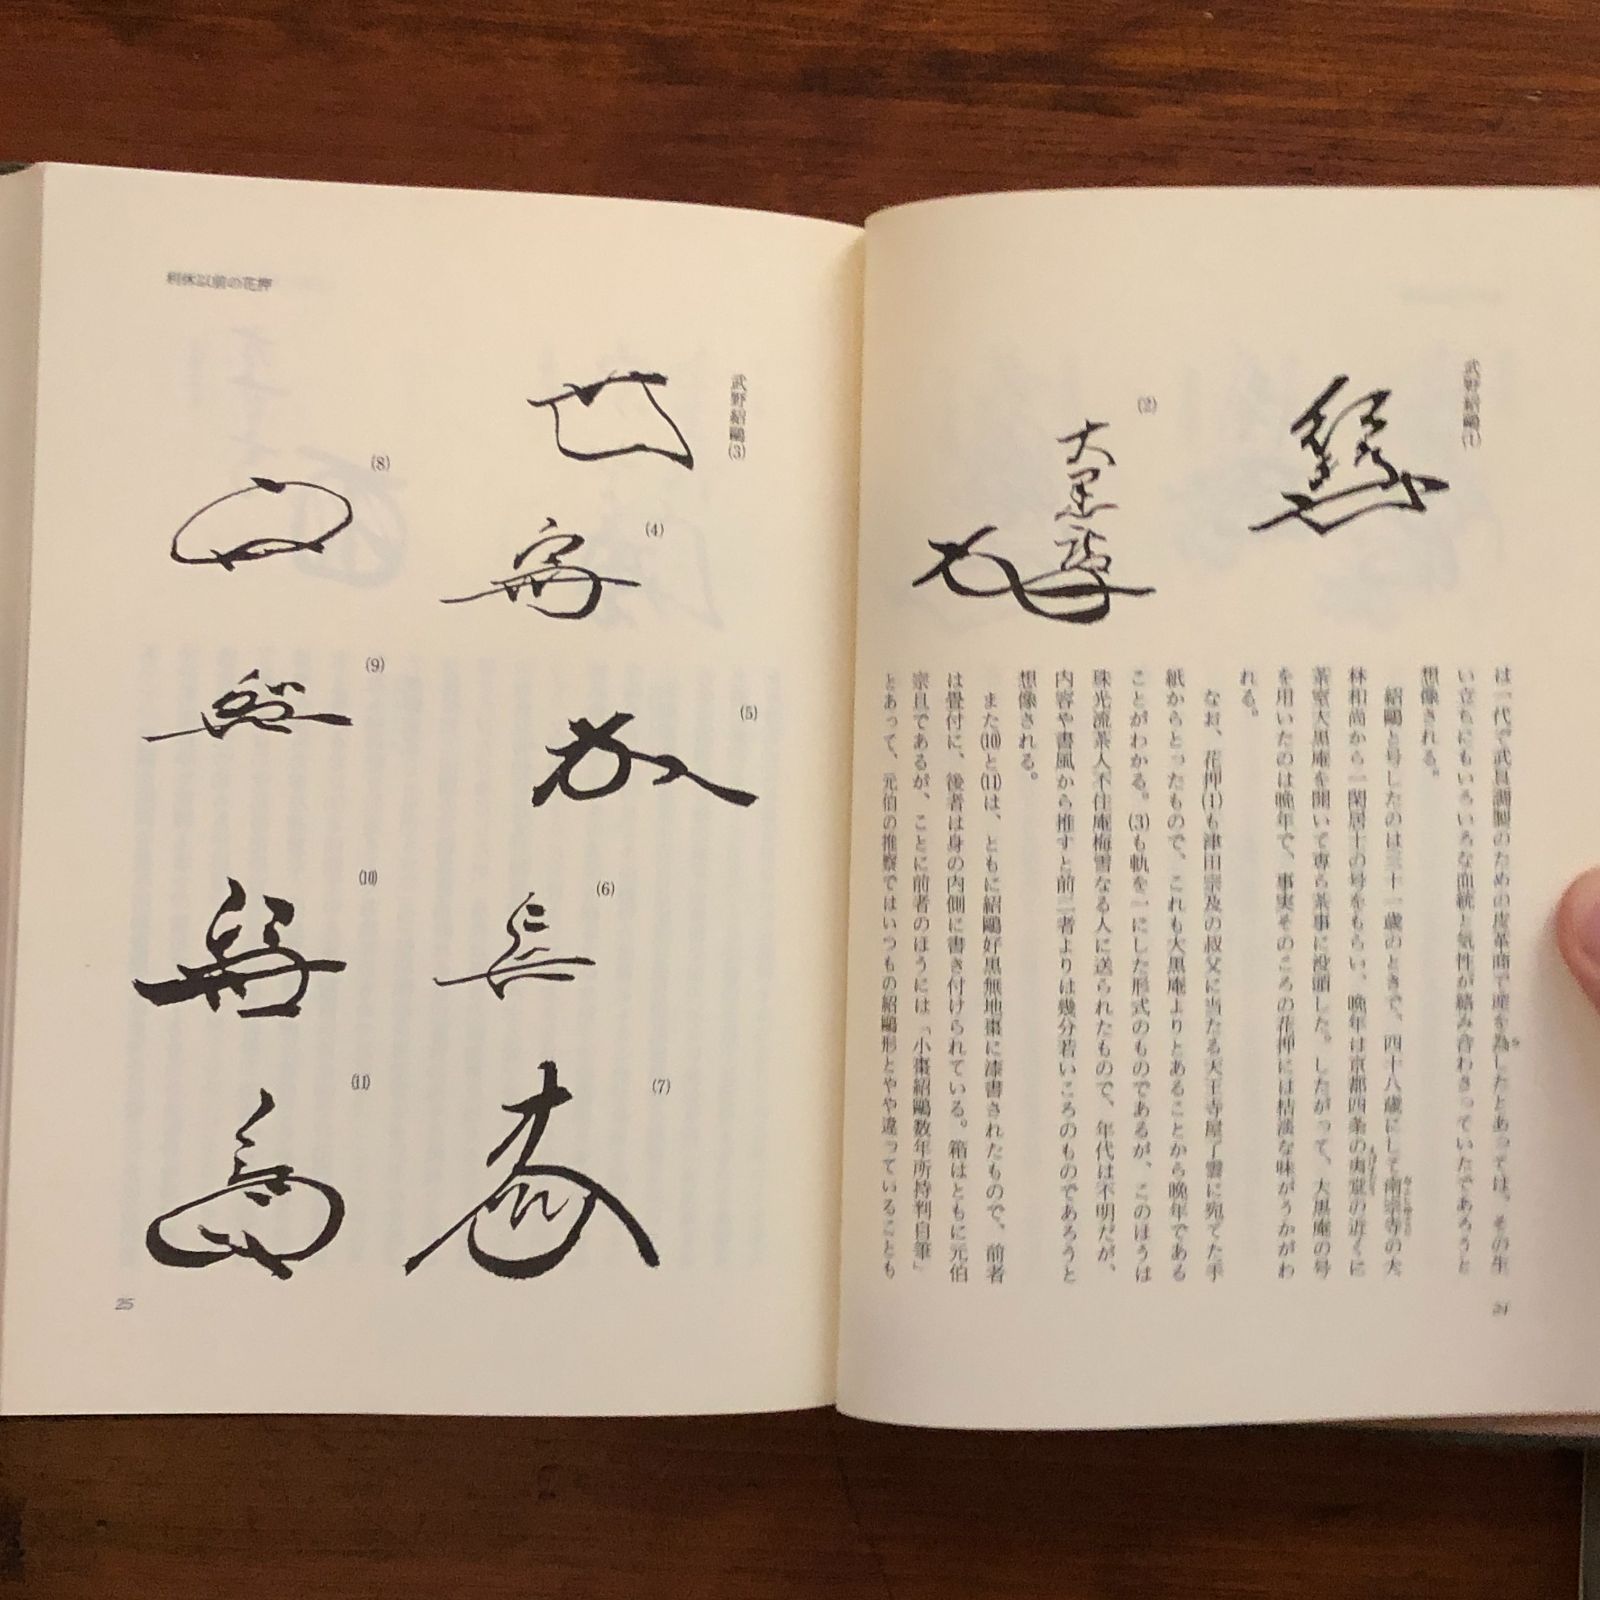 武野紹鷗(1)
(2)
大黒庵
は一代で武具調製のための皮革商で産を為したとあっては、その生
い立ちにもいろいろな血統と気性が絡み合わさっていたであろうと
想像される。
紹鷗と号したのは三十一歳のときで、四十八歳にして南宗寺の大
林和尚から一閑居士の号をもらい、晩年は京都四条の夷堂の近くに
茶室大黒庵を開いて専ら茶事に没頭した。したがって、大黒庵の号
を用いたのは晩年で、事実そのころの花押には枯淡な味がうかがわ
れる。
なお、花押(1)も津田宗及の叔父に当たる天王寺屋了雲に宛てた手
紙からとったもので、これも大黒庵よりとあることから晩年である
ことがわかる。(3)も軌を一にした形式のものであるが、このほうは
珠光流茶人不住庵梅雪なる人に送られたもので、年代は不明だが、
内容や書風から推すと前二者よりは幾分若いころのものであろうと
想像される。
また(10)と(11)は、ともに紹鷗好黒無地棗に漆書されたもので、前者
は畳付に、後者は身の内側に書き付けられている。箱はともに元伯
宗旦であるが、ことに前者のほうには「小棗紹鷗数年所持判自筆」
とあって、元伯の推察ではいつもの紹鷗形とやや違っていることも
24
利休以前の花押
武野紹鷗(3)
(4)
(5)
(6)
(7)
(8)
(9)
(10)
(11)
25